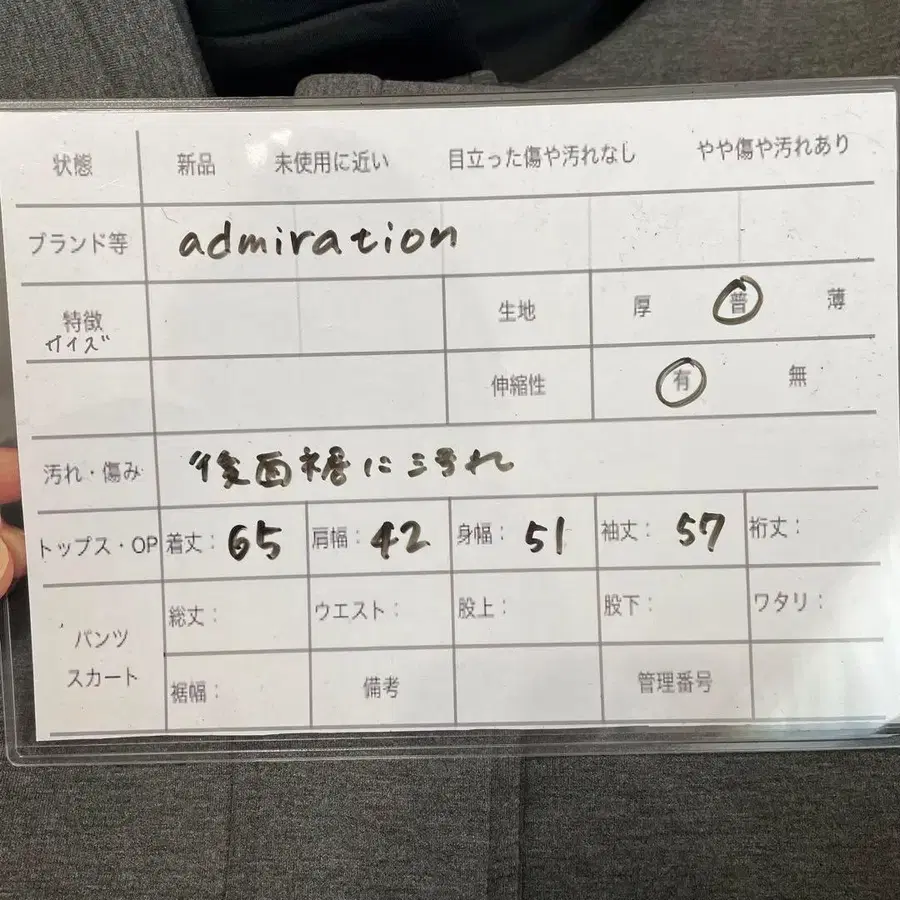 状態 新品 未使用に近い 目立った傷や汚れなし やや傷や汚れあり
ブランド等 admiration
特徴 生地 厚 普 薄
サイズ
伸縮性 有 無
汚れ・傷み 後面裾に汚れ
トップス・OP 着丈: 65 肩幅: 42 身幅: 51 袖丈: 57 裄丈:
パンツ 総丈: ウエスト: 股上: 股下: ワタリ:
スカート 裾幅: 備考 管理番号